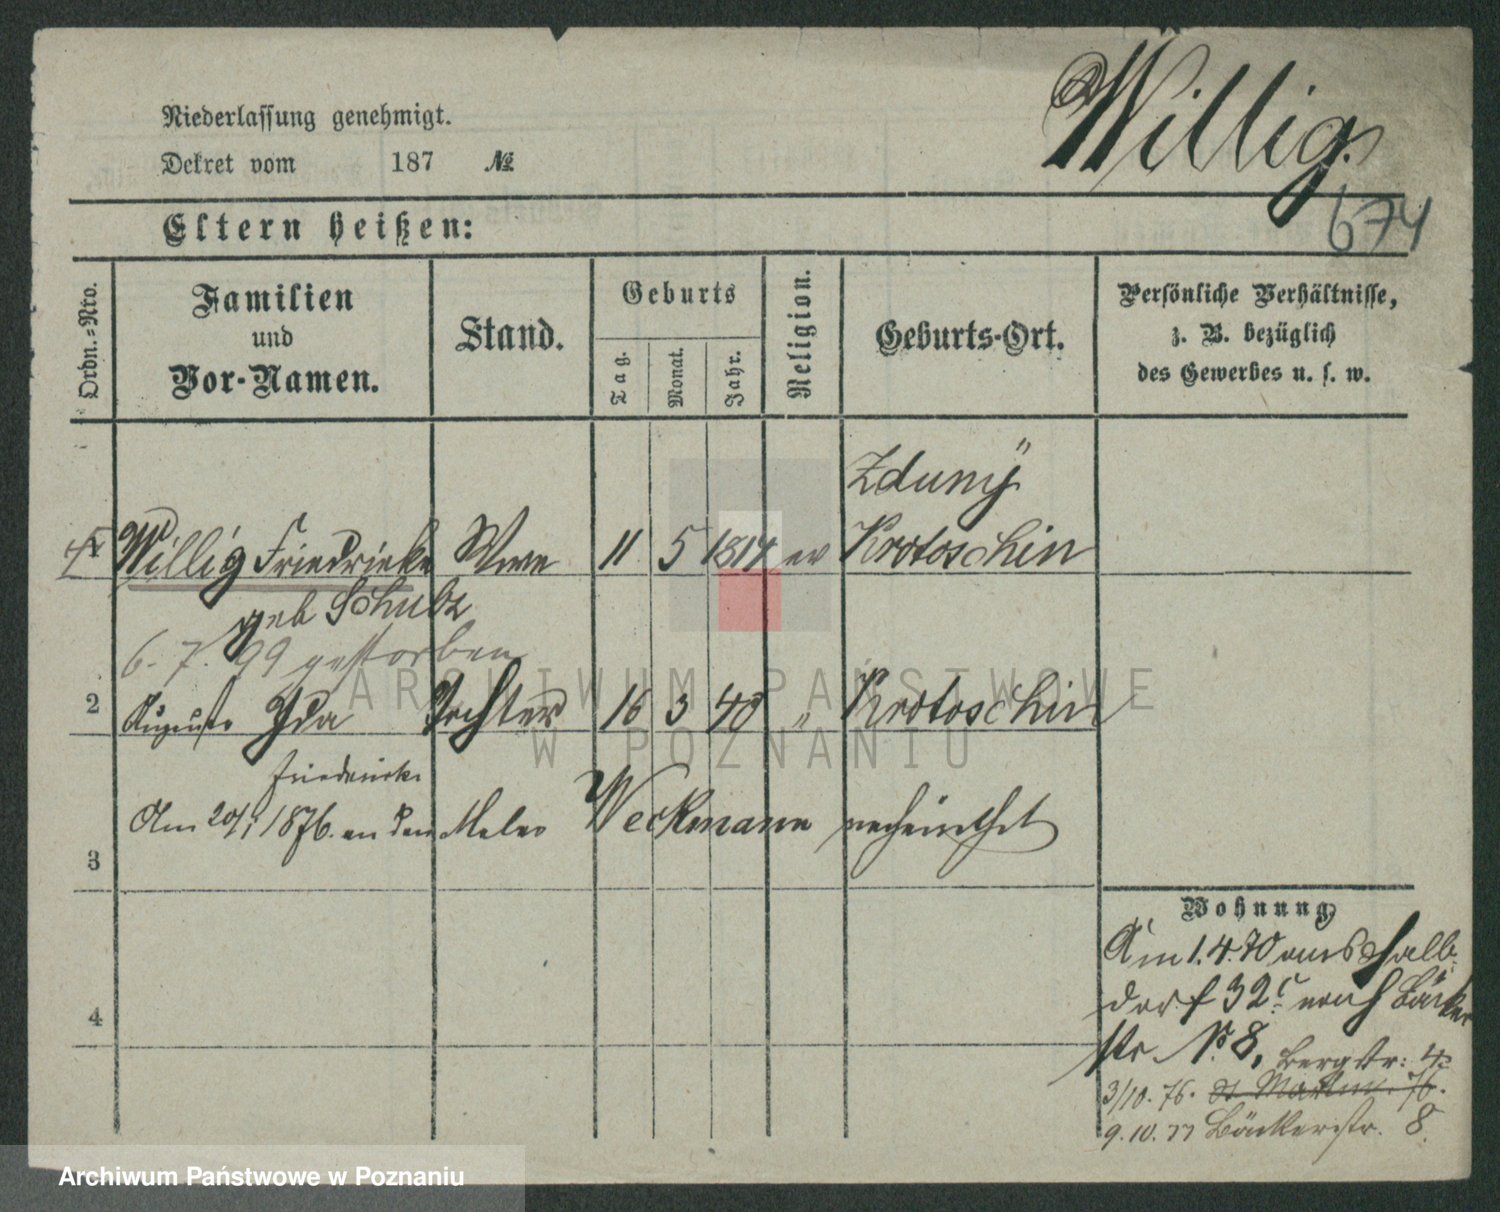 Willig.
674
Niederlassung genehmigt.
Dekret vom 187 №
Eltern heißen:
Ordn.-Nro.
Familien
und
Vor-Namen.
Stand.
Geburts
Tag.
Monat.
Jahr.
Religion.
Geburts-Ort.
Persönliche Verhältnisse,
z. B. bezüglich
des Gewerbes u. s. w.
Zduny
Willig Friedrieke Wwe 11 5 1814 ev Krotoschin
geb Schulz
6. 7. 99 gestorben
2 Auguste Ida Tochter 16 3 40 " Krotoschin
Friederike
Am 1876. an den Maler Weckmann verheirathet
3
4
Wohnung
Am 1.4.70 aus Halb
dorf 32 nach Bäcker
str N. 8.
Bergstr: 4
3/10. 76. St Martin. 76.
9. 10. 77 Bäckerstr. 8.
ARCHIWUM PAŃSTWOWE
W POZNANIU
Archiwum Państwowe w Poznaniu